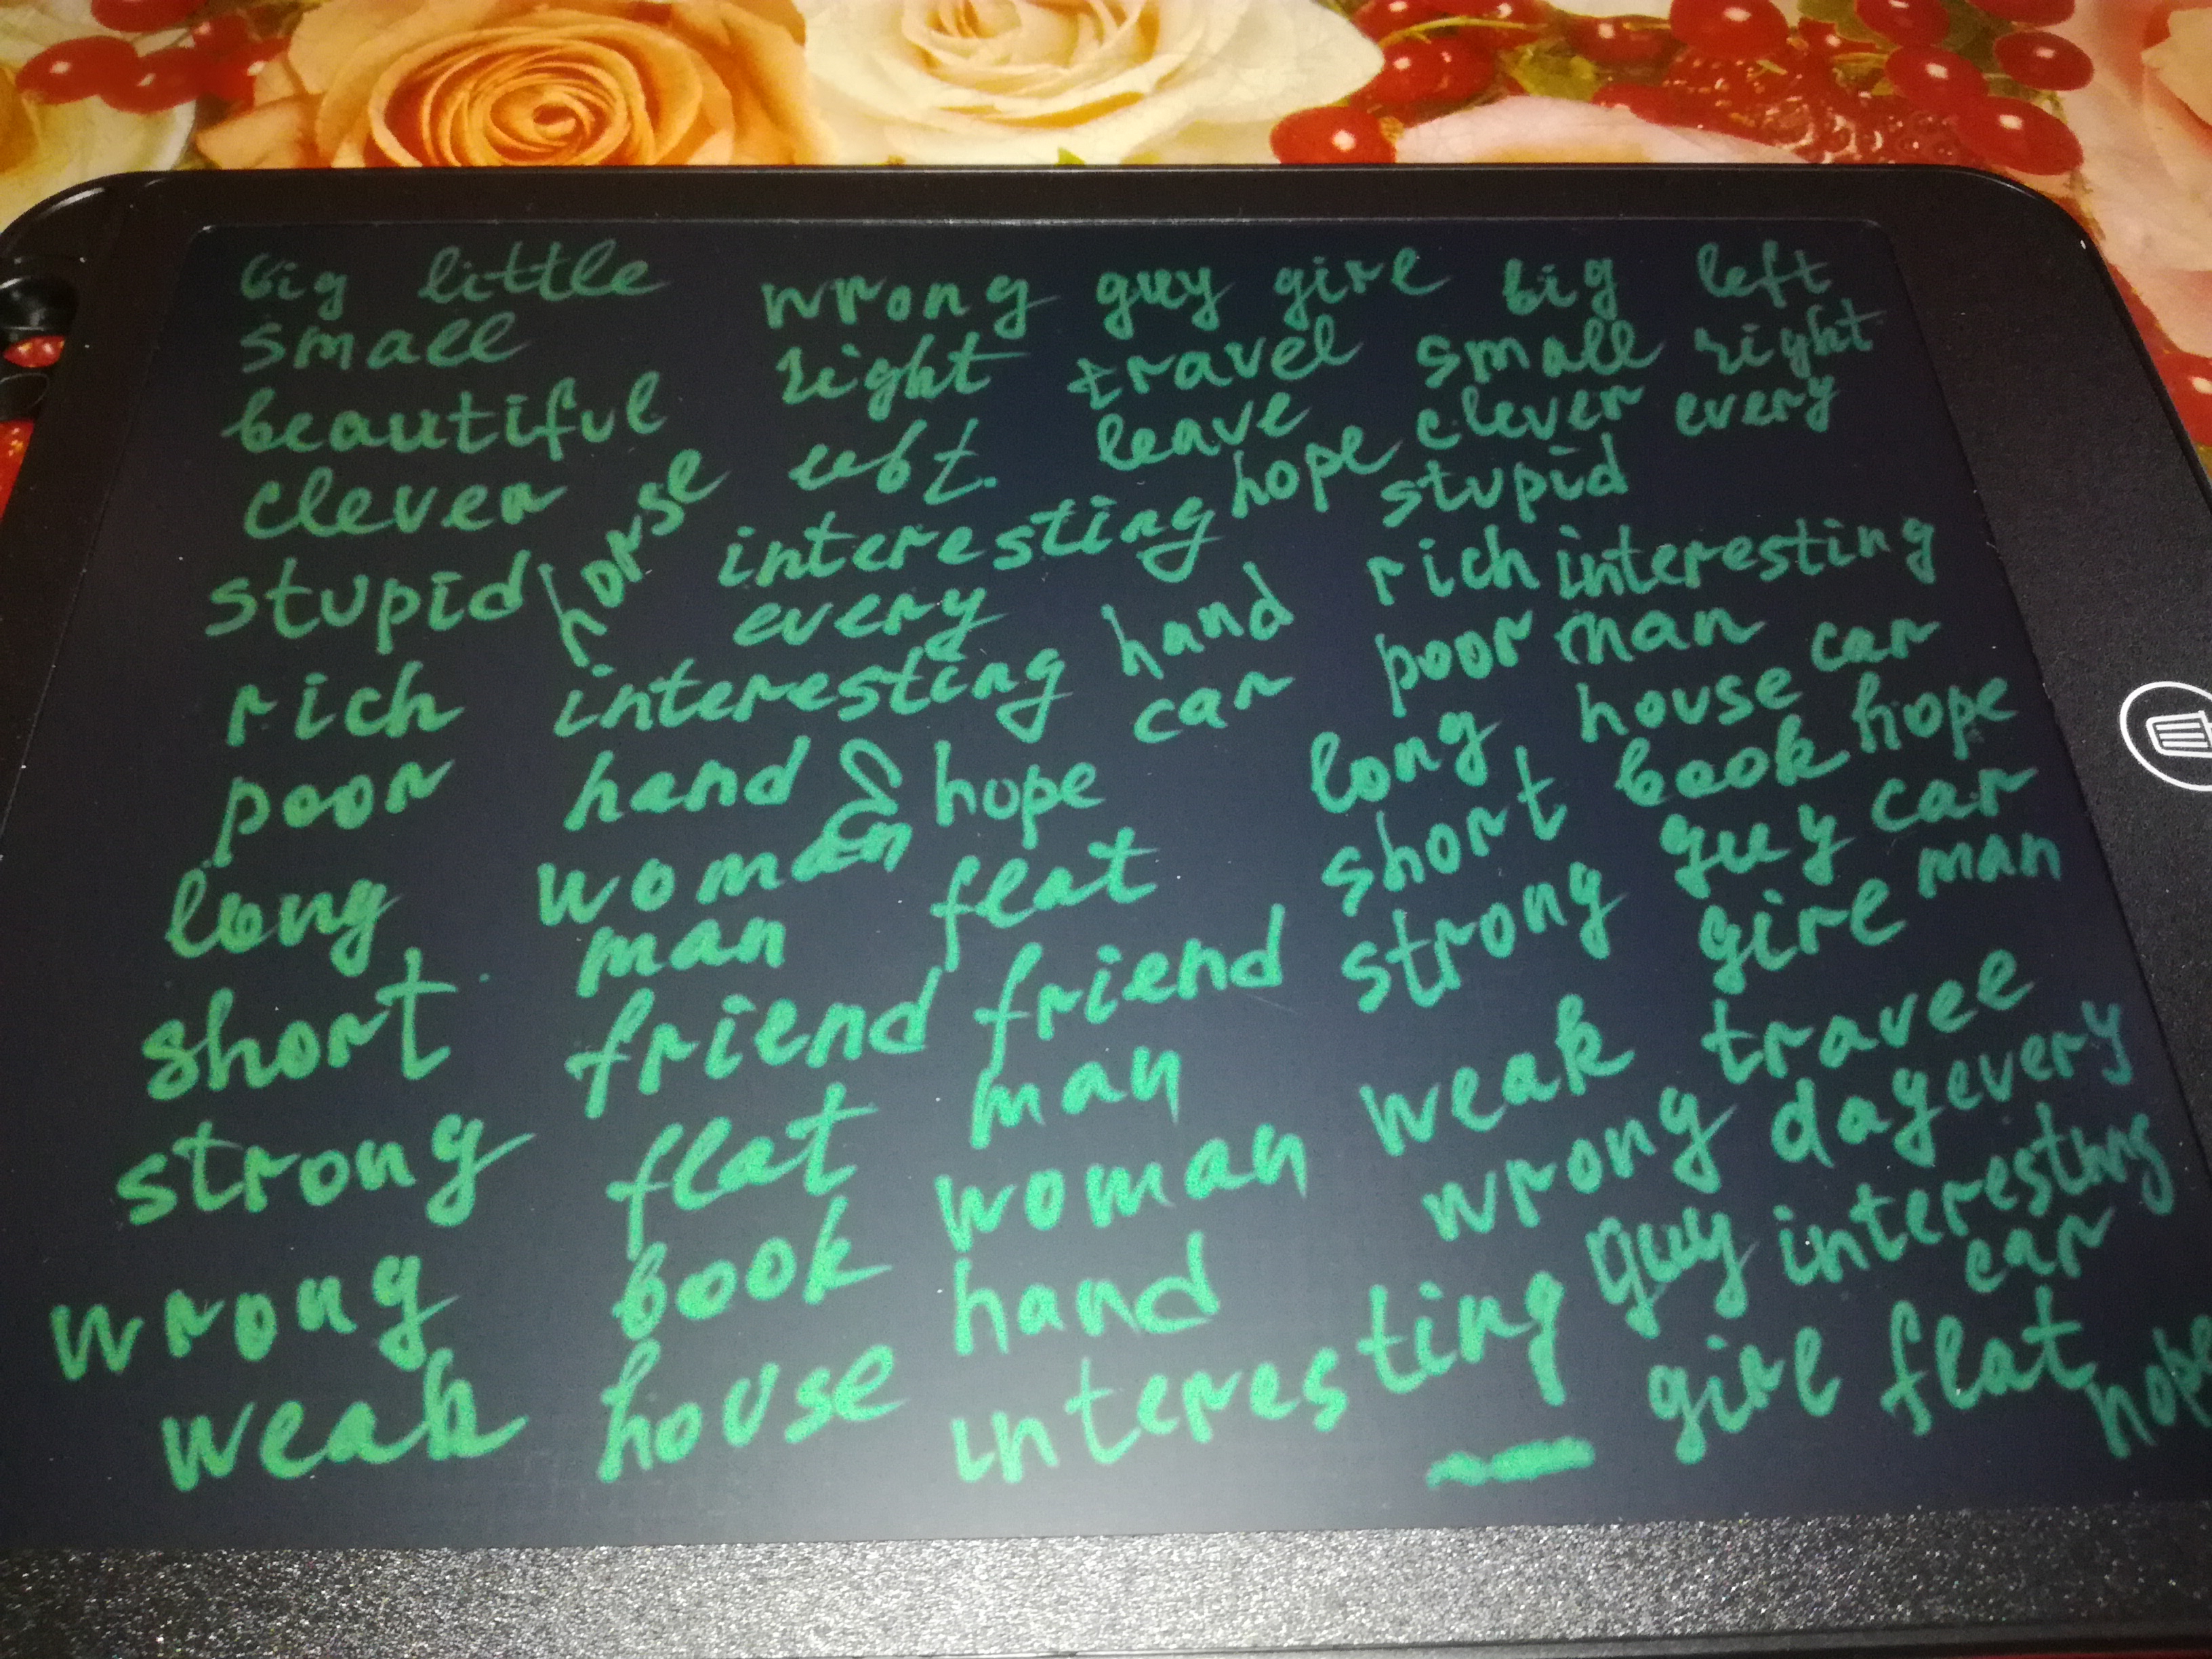 big little wrong guy girl big left
small right travel small right
beautiful left. leave clever every
clever horse interesting hope stupid
stupid every hand rich interesting
rich interesting car poor man car
poor hand & hope long house hope
long woman flat short book car
short man friend strong guy man
strong friend man weak girl
wrong flat woman wrong travel
weak book hand guy day every
house interesting girl interesting
flat car
hope